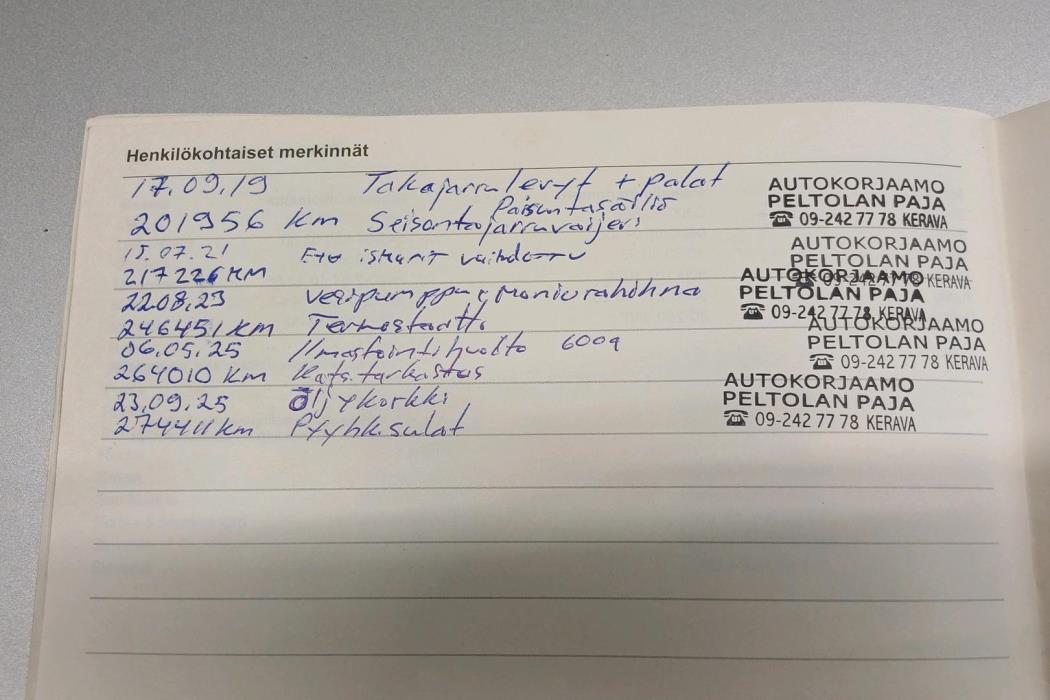 Henkilökohtaiset merkinnät
17.09.19 Takajarrulevyt + palat
Paisuntasäiliö
201956 km Seisontajarruvaijeri
AUTOKORJAAMO
PELTOLAN PAJA
☎ 09-242 77 78 KERAVA
15.07.21 Etu iskarit vaihdettu
217226 KM
AUTOKORJAAMO
PELTOLAN PAJA
☎ 09-242 77 78 KERAVA
22.08.23 vesipumppu, moniurahihna
246451 km Termostaatti
AUTOKORJAAMO
PELTOLAN PAJA
☎ 09-242 77 78 KERAVA
06.05.25 Ilmastointihuolto 600g
264010 km Kats.tarkastus
AUTOKORJAAMO
PELTOLAN PAJA
☎ 09-242 77 78 KERAVA
23.09.25 öljykorkki
274411 km Pyyhk.sulat
AUTOKORJAAMO
PELTOLAN PAJA
☎ 09-242 77 78 KERAVA